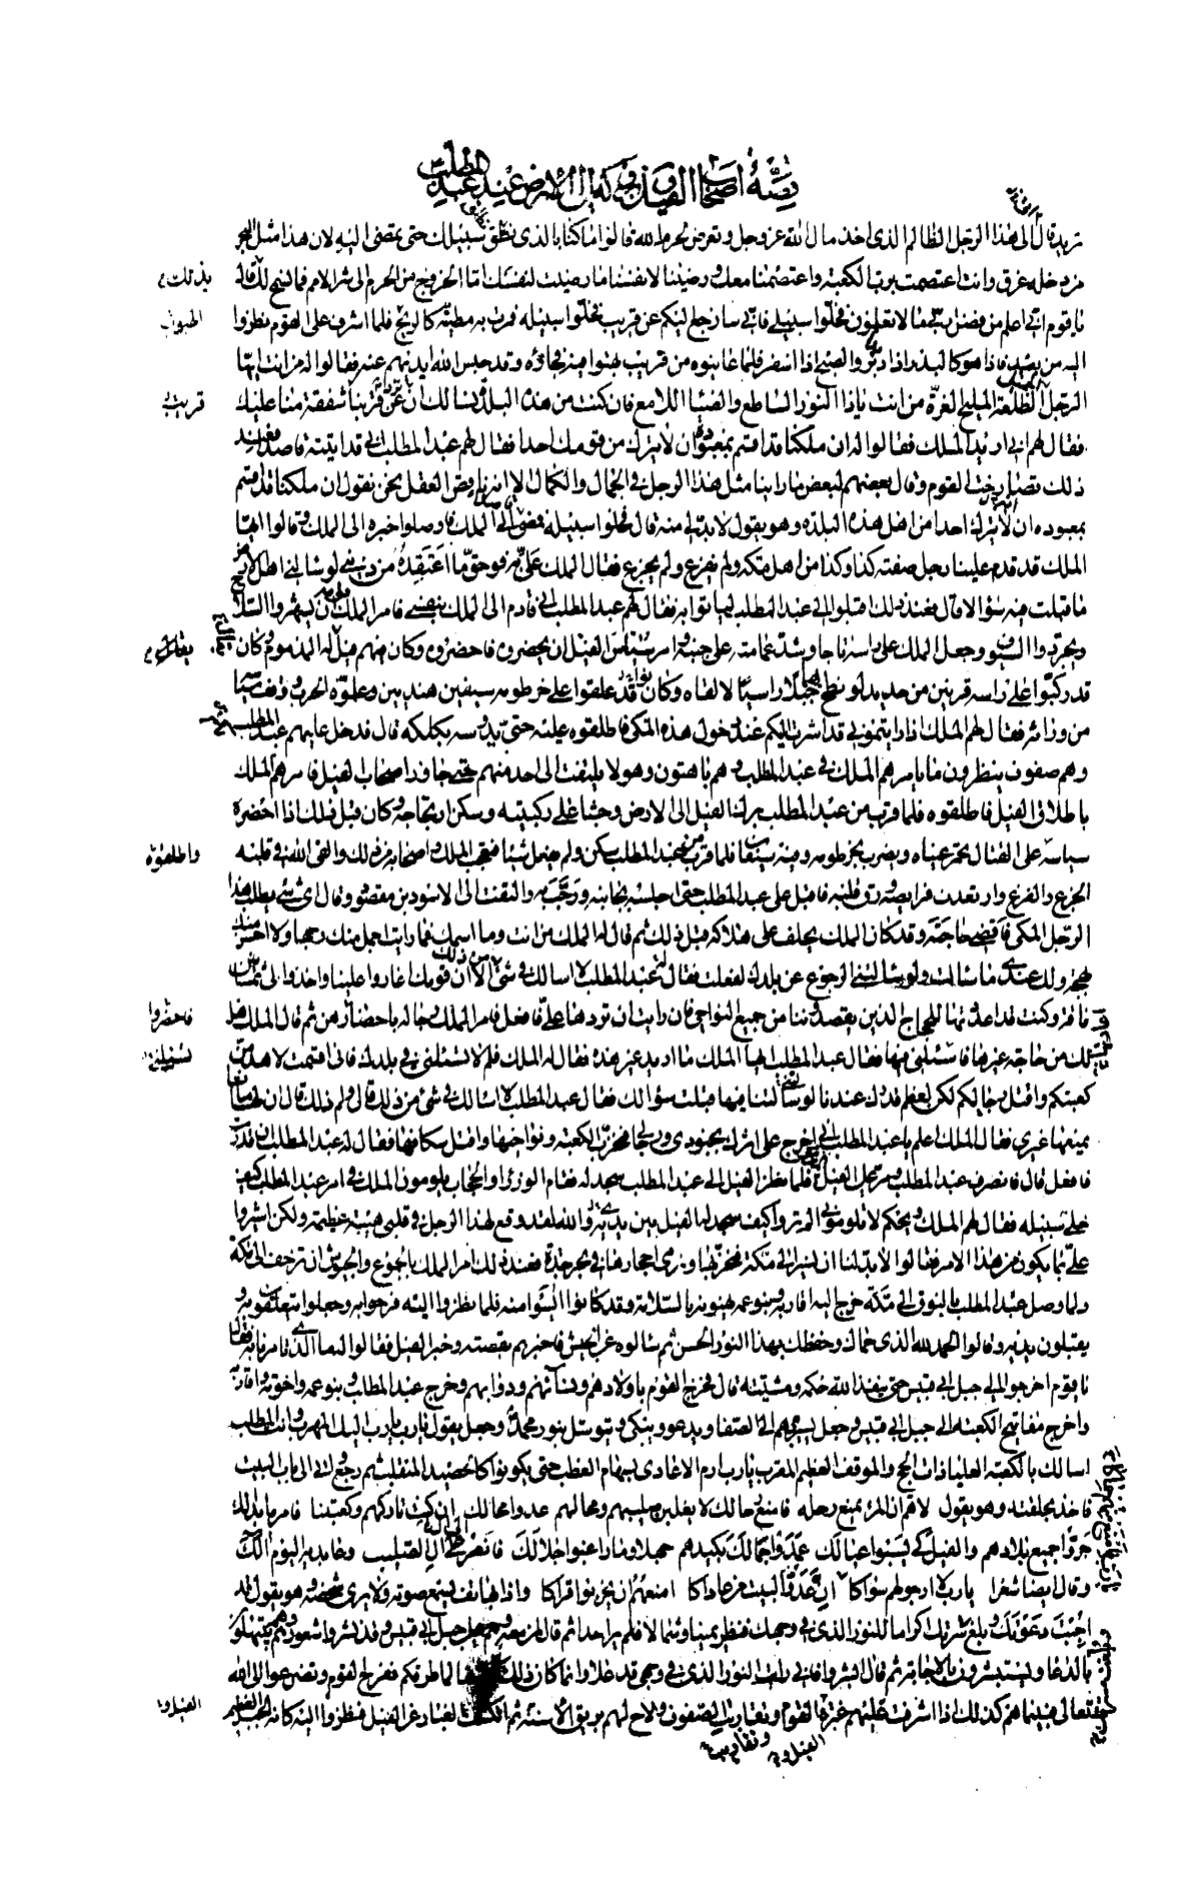 قصة أصحاب الفيل و بروكه الى الارض عند عبد المطلب
تريد قال الى هذا الرجل الظالم الذى اخذ مال الله عز و جل و تعرض لحرم الله قالوا ما كنا بالذى نطلق سبيلك حتى تمضى اليه لان هذا مثل البحر
من دخله غرق و انت اعتصمت برب الكعبة و اعتصمنا معك و رضينا لانفسنا ما رضيت لنفسك اما الخروج من الحرم الى شر الامم فما نسمح لك قال
يا قوم انى اعلم من فضل ربى ما لا تعلمون فخلوا سبيلى فانى سارجع اليكم عن قريب فخلوا سبيله فمرت به مطيته كالريح فلما اشرف على القوم نظروا
اليه من بعيد فاذا هو كالبدر اذا بدر و الصبح اذا اسفر فلما عاينوه من قريب بهتوا منه فجاؤه و قد حبس الله ايديهم عنه فقالوا له من انت ايها
الرجل الجميل الطلعة المليح الغرة من انت يا ذا النور الساطع و الضياء اللامع فان كنت من هذه البلدة نسالك ان ترد عن قربنا شفقة منا عليك
فقال لهم انى اريد الملك فقالوا له ان ملكنا قد اقسم بمعبوده ان لا يترك من قومك احدا فقال لهم عبد المطلب انى قد اتيته قاصدا فعند
ذلك تصارخت القوم و قال بعضهم لبعض ما راينا مثل هذا الرجل فى الجمال و الكمال الا انه ناقص العقل نحن نقول ان ملكنا قد اقسم
بمعبوده ان لا يترك احدا من اهل هذه البلدة و هو يقول لا بد لى منه قال فخلوا سبيله فمضى الى الملك فاوصلوا خبره الى الملك و قالوا ايها
الملك قد قدم علينا رجل صفته كذا و كذا من اهل مكة و لم يفزع و لم يجزع فقال الملك على به فوحق ما اعتقده من دينى لو سالنى اهل الارض
ما قبلت فيه سؤالا قال فعند ذلك اقبلوا الى عبد المطلب لياتوا به فقال لهم عبد المطلب انى قادم الى الملك بنفسى فامر الملك قومه ان يشهروا السلاح
و يجردوا السيوف و جعل الملك على راسه تاجا و شد عمامته على جبينه و امر سياس الفيل ان يحضروه فاحضروه و كان فيهم فيل له المذموم و كان
قد ركبوا على راسه قرنين من حديد لو نطح جبلا راسيا لالقاه و كانوا قد علقوا على خرطومه سيفين هنديين و علموه الحرب و وقف سياسه
من ورائه فقال لهم الملك اذا رايتمونى قد اشرت اليكم عند دخول هذا المكى فاطلقوه عليه حتى يدوسه بكلكله قال فدخل عليهم عبد المطلب
و هم صفوف ينظرون ما يامرهم الملك فى عبد المطلب و هم باهتون و هو لا يلتفت الى احد منهم حتى جاوز اصحاب الفيل فامرهم الملك
باطلاق الفيل فاطلقوه فلما قرب من عبد المطلب برك الفيل الى الارض و جثا على ركبتيه و سكن ارتجاجه و كان قبل ذلك اذا احضره
سياسه على القتال تحمر عيناه و يضرب بخرطومه و فيه سيفان فلما قرب من عبد المطلب سكن و لم يفعل شيئا فتعجب الملك و اصحابه من ذلك و القى الله فى قلبه
الجزع و الفزع و ارتعدت فرائصه و رق قلبه فاقبل على عبد المطلب حتى اجلسه بجانبه و رحب به و التفت الى الاسود بن مقصود و قال اى شىء يطلب هذا
الرجل المكى فاقضى حاجته و قد كان الملك يحلف على هلاكه قبل ذلك ثم قال له الملك من انت و ما اسمك فما رايت اجمل منك وجها و لا احسن منك
بهجة و لك عندى ما سالت و لو سالتنى الرجوع عن بلدك لفعلت فقال له عبد المطلب لا اسالك فى شى من ذلك الا ان قومك اغاروا علينا و اخذوا لى ثمانين
ناقة و كنت قد اعددتها للحجاج الذين يقصدوننا من جميع النواحى فان رايت ان تردها على فافعل فامر الملك رجاله باحضارهن ثم قال الملك هل
لك من حاجة غيرها فاسئلنى فيها فقال عبد المطلب ايها الملك ما اريد غير هذه فقال له الملك فلم لا تسئلنى فى بلدك فانى اقسمت لاهدمن
كعبتكم و اقتل رجالكم لكن لعظم قدرك عندنا لو سالتنا فيها قبلت سؤالك فقال عبد المطلب لا اسالك فى شى من ذلك قال و لم ذلك قال ان لها مانعا
يمنعها غيرى فقال الملك اعلم يا عبد المطلب انى اخرج على اثرك بجنودى و رجالى فاخرب الكعبة و نواحيها و اقتل سكانها فقال له عبد المطلب ان قدرت
فافعل قال فانصرف عبد المطلب و مر على الفيل المذموم فلما نظر الفيل الى عبد المطلب سجد له فقام الوزراء و الحجاب يلومون الملك فى امر عبد المطلب كيف
خلى سبيله فقال لهم الملك ويحكم لا تلومونى الم تروا كيف سجد له الفيل بين يديه و الله لقد وقع لهذا الرجل فى قلبى هيبة عظيمة و لكن اشيروا
على بما يكون من هذا الامر فقالوا لا بد لنا ان نسير الى مكة فنخربها و نرمى احجارها فى بحر جدة فعند ذلك امر الملك بالجموع و الجيوش ان ترحف الى مكة
و لما وصل عبد المطلب بالنوق الى مكة خرج اليه اقاربه و بنو عمه يهنونه بالسلامة و قد كانوا ايسوا منه فلما نظروا اليه فرحوا به و جعلوا يتعلقون به و
يقبلون يديه و قالوا الحمد لله الذى حماك و حفظك بهذا النور الحسن ثم سالوه عن الجيش فاخبرهم بقصته و خبر الفيل فقالوا له ما الذى تامرنا به فقال
يا قوم اخرجوا الى جبل ابى قبيس حتى ينفذ الله حكمه و مشيته قال فخرج القوم باولادهم و نسائهم و دوابهم و خرج عبد المطلب و بنو عمه و اخوته و اقاربه
و اخرج مفاتيح الكعبة الى جبل ابى قبيس و جعل يسير بهم الى الصفا و يدعو و يبكى و يتوسل بنور محمد و جعل يقول يا رب يا رب اليك المهرب و انت المطلب
اسالك بالكعبة العليا ذات الحج و الموقف العظيم المقرب يا رب ارم الاعادى بسهام العطب حتى يكونوا كالحصيد المنقلب ثم رجع و اتى الى باب البيت
فاخذ بحلقته و هو يقول لاهم ان المرء يمنع رحله فامنع حلالك لا يغلبن صليبهم و محالهم عدوا محالك ان كنت تاركهم و كعبتنا فامر ما بدا لك
جروا جميع بلادهم و الفيل كى يسبوا عيالك عمدوا حماك بكيدهم جهلا و ما راقبوا جلالك فانصر على ال الصليب و عابديه اليوم الك
و قال ايضا شعرا يا رب لا ارجو لهم سواكا ان عدو البيت من عاداكا امنعهم ان يخربوا قراكا و اذا بهاتف يسمع صوته و لا يرى شخصه و هو يقول قد
اجبت دعوتك و بلغ سرتك اكراما للنور الذى فى وجهك فنظر يمينا و شمالا فلم ير احدا ثم قال لمن معه و هم على جبل ابى قبيس و قد نشروا شعورهم و هم يبتهلون
بالدعا و يستبشرون بالاجابة ثم قال ابشروا فانى رايت النور الذى فى وجهى قد علا و انما كان ذلك كاشفا لما طرقكم ففرح القوم و تضرعوا الى الله
تعالى فبينما هم كذلك اذ اشرفت عليهم غبرة القوم و تقاربت الصفوف و لاح لهم بريق الاسنة ثم انكشف الغبار عن الفيل فنظروا اليه كانه الجبل العظيم
بذلك
الجواب
قريب
واطلقوه
فاحضروا
تسئلنى
الفيل و